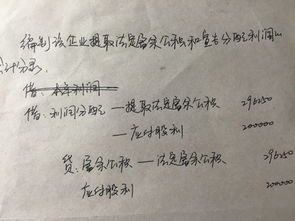 编制该企业提取法定盈余公积和宣告分配利润的
会计分录.
借：本年利润
借：利润分配—提取法定盈余公积 296250
—应付股利 200000
贷：盈余公积—法定盈余公积 296250
应付股利 200000